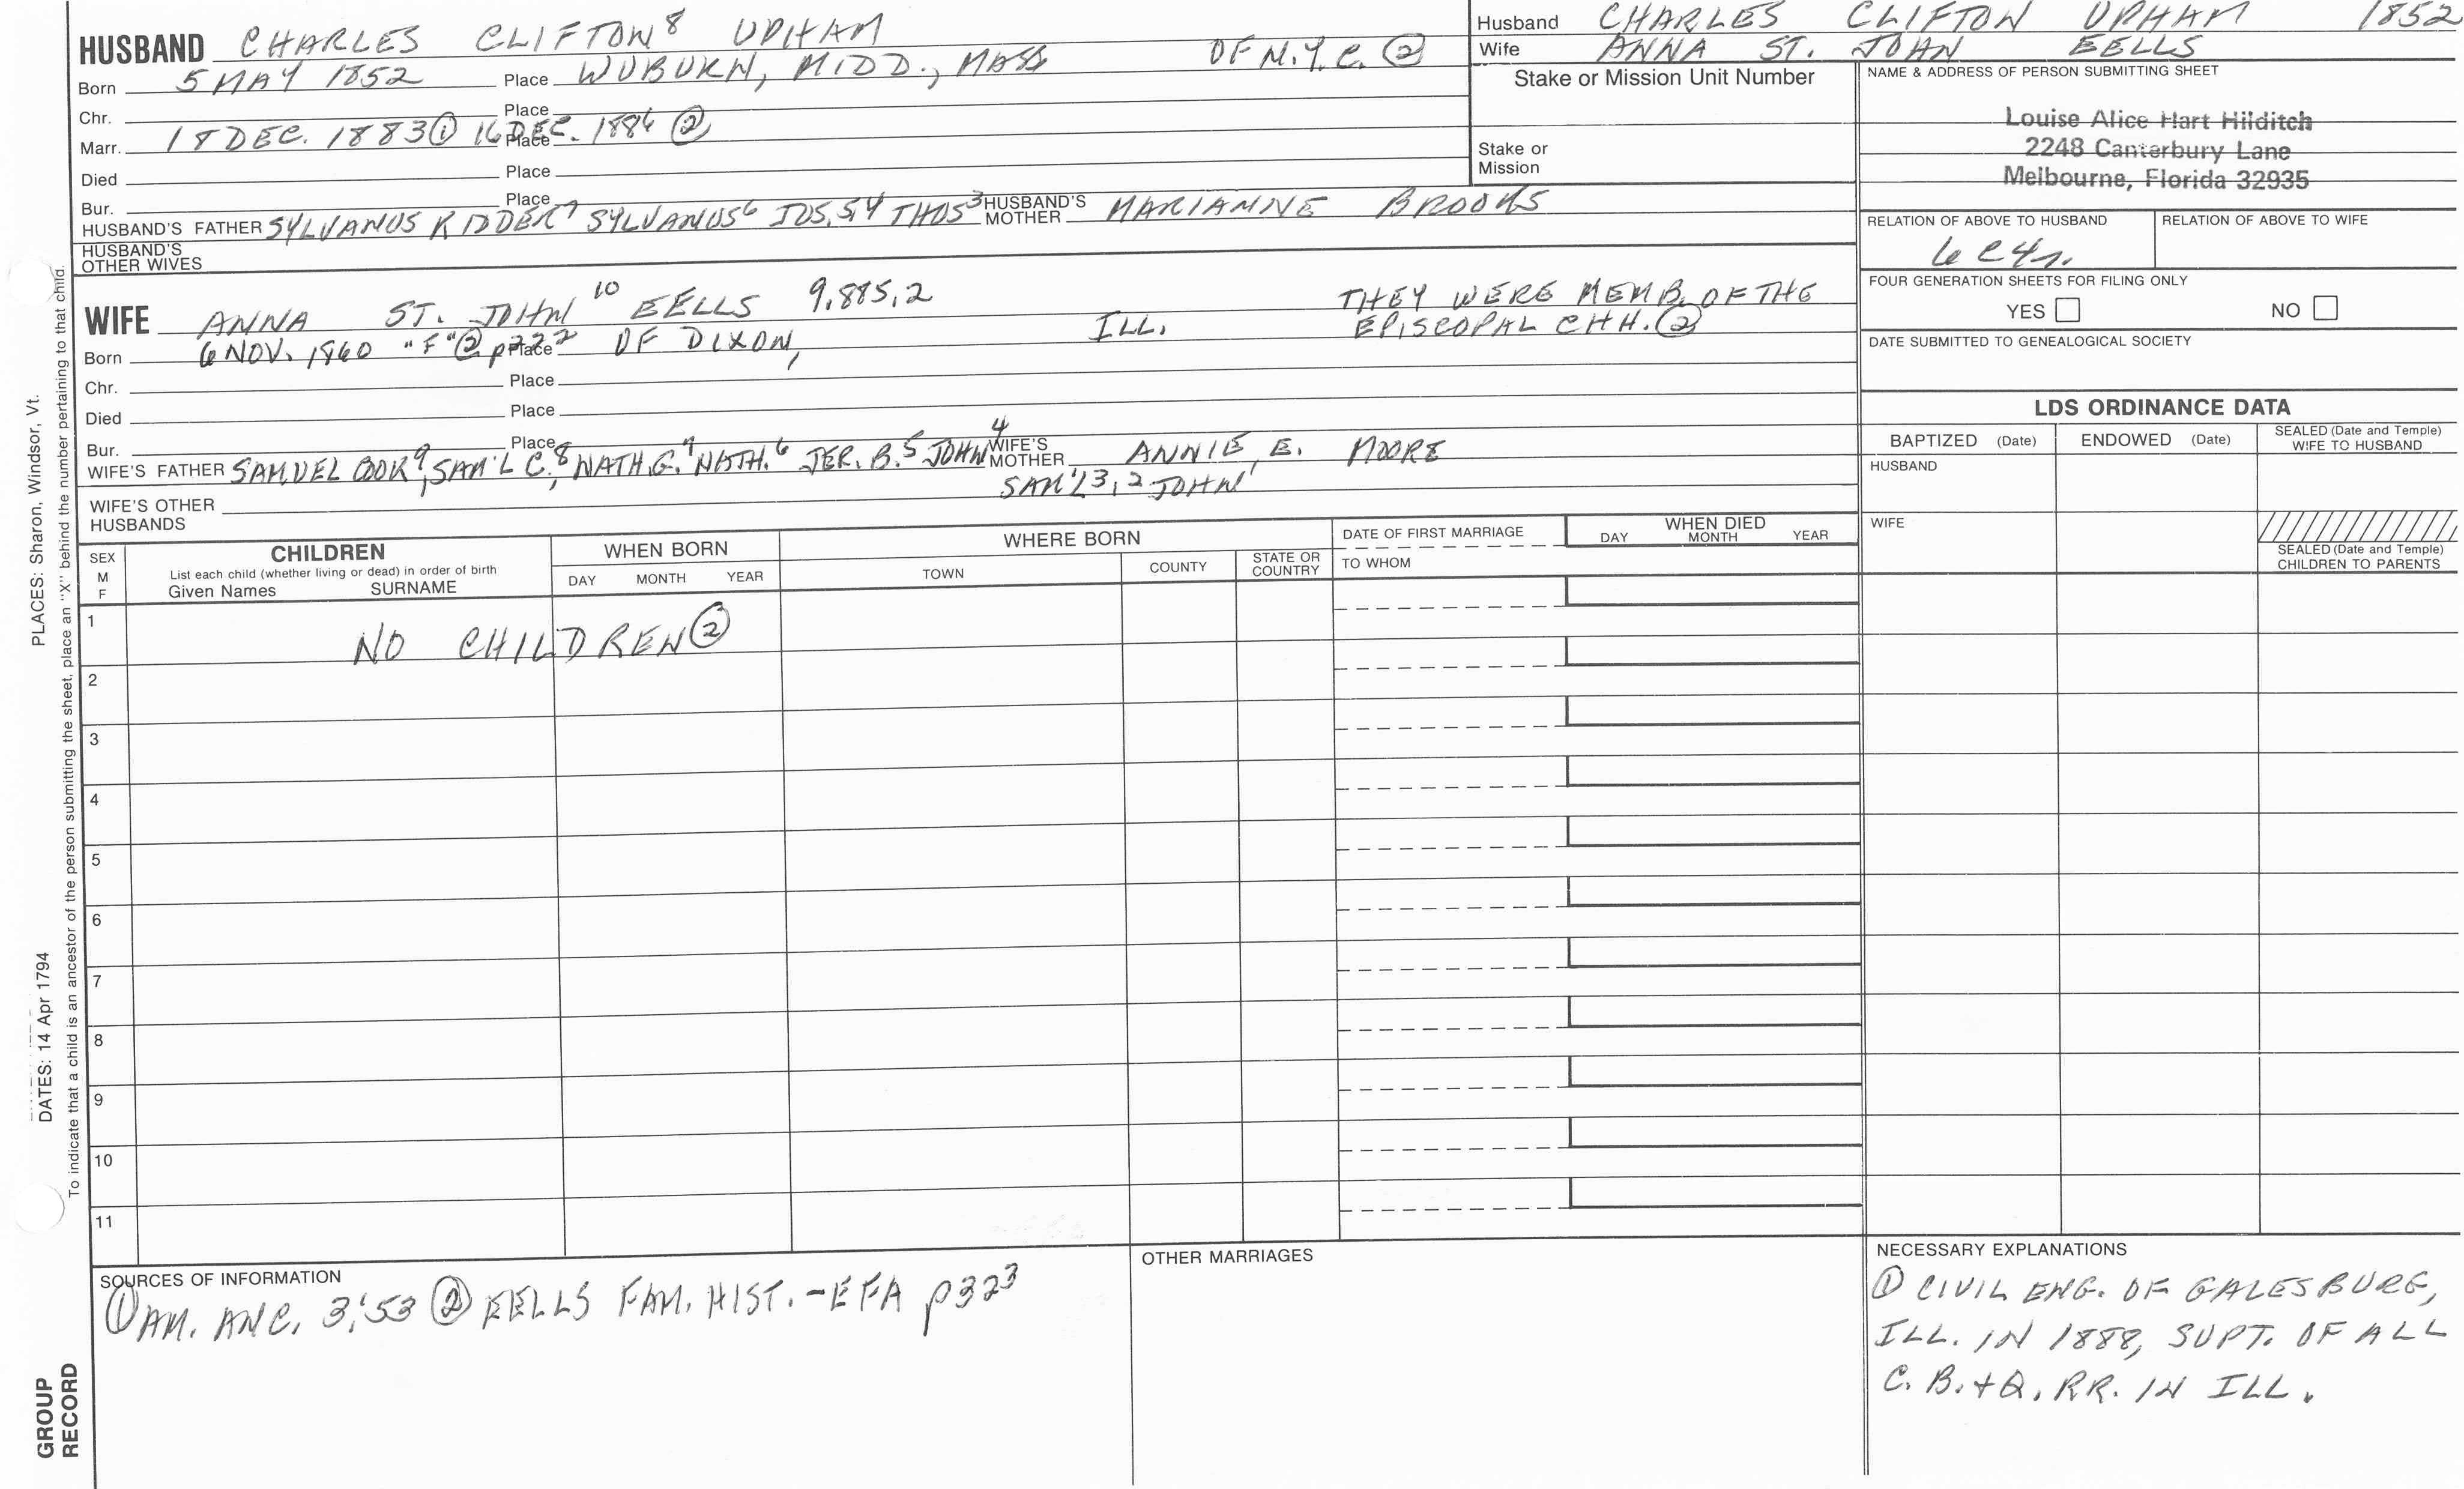 HUSBAND CHARLES CLIFTON⁸ UPHAM
Born 5 MAY 1852 Place WOBURN, MIDD., MASS OF N.Y.C. ②
Chr. Place
Marr. 18 DEC. 1883① 16 DEC. 1886 ② Place
Died Place
Bur. Place
HUSBAND'S FATHER SYLVANUS KIDDER⁷ SYLVANUS⁶ JOS. 5,4 THOS³ HUSBAND'S MOTHER MARIANNE BROOKS
HUSBAND'S OTHER WIVES
Husband CHARLES CLIFTON UPHAM 1852
Wife ANNA ST. JOHN EELLS
Stake or Mission Unit Number
Stake or Mission
NAME & ADDRESS OF PERSON SUBMITTING SHEET
Louise Alice Hart Hilditch
2248 Canterbury Lane
Melbourne, Florida 32935
RELATION OF ABOVE TO HUSBAND RELATION OF ABOVE TO WIFE
6C4r.
FOUR GENERATION SHEETS FOR FILING ONLY
YES NO
DATE SUBMITTED TO GENEALOGICAL SOCIETY
WIFE ANNA ST. JOHN¹⁰ EELLS 9,885,2 THEY WERE MEMB. OF THE
EPISCOPAL CHH. ②
Born 6 NOV. 1860 "F" ② p322 Place OF DIXON, ILL.
Chr. Place
Died Place
Bur. Place
WIFE'S FATHER SAMUEL COOK⁹, SAM'L C.⁸, NATH. G.⁷ NATH.⁶ JER. B.⁵ JOHN⁴ WIFE'S MOTHER ANNIE E. MOORE
SAM'L 3,2 JOHN¹
WIFE'S OTHER HUSBANDS
LDS ORDINANCE DATA
BAPTIZED (Date) ENDOWED (Date) SEALED (Date and Temple) WIFE TO HUSBAND
HUSBAND
WIFE
SEALED (Date and Temple) CHILDREN TO PARENTS
SEX M F
CHILDREN
List each child (whether living or dead) in order of birth
Given Names SURNAME
WHEN BORN
DAY MONTH YEAR
WHERE BORN
TOWN COUNTY STATE OR COUNTRY
DATE OF FIRST MARRIAGE
TO WHOM
WHEN DIED
DAY MONTH YEAR
1 NO CHILDREN ②
2
3
4
5
6
7
8
9
10
11
SOURCES OF INFORMATION
① AM. ANC. 3:53 ② EELLS FAM. HIST. - EFA p323
OTHER MARRIAGES
NECESSARY EXPLANATIONS
① CIVIL ENG. OF GALESBURG,
ILL. IN 1888, SUPT. OF ALL
C. B. + Q. RR. IN ILL.
PLACES: Sharon, Windsor, Vt.
DATES: 14 Apr 1794
To indicate that a child is an ancestor of the person submitting the sheet, place an "X" behind the number pertaining to that child.
GROUP
RECORD